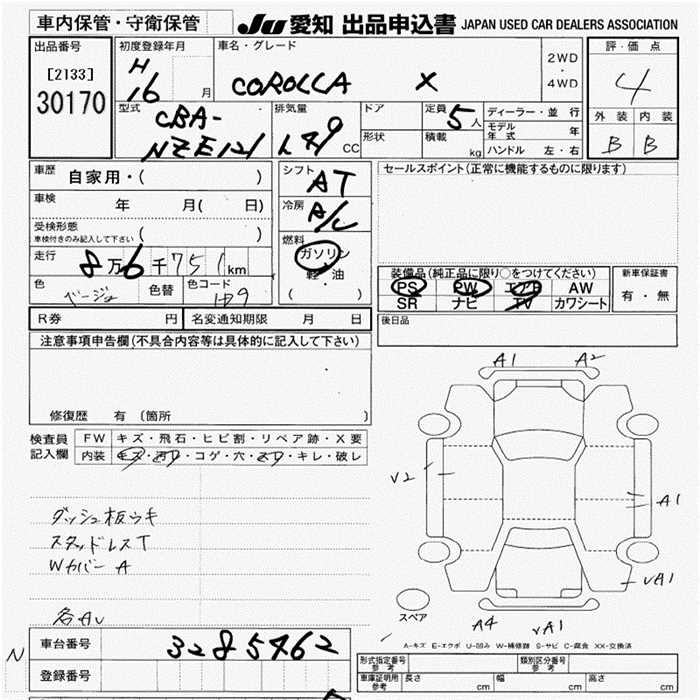 車内保管・守衛保管 JU 愛知 出品申込書 JAPAN USED CAR DEALERS ASSOCIATION
出品番号 初度登録年月 車名・グレード 2WD・4WD 評・価 点
[2133]
30170
H 16 月 COROLLA X 4
外 装 内 装
B B
型式 CBA-NZE121 排気量 1.49 CC ドア 形状 定員 5 人 積載 kg
ディーラー・並 行
モデル年式 年
ハンドル 左・右
車歴 自家用・( )
車検 年 月( 日)
受検形態 ( )
車検付きのみ記入して下さい
走行 8万6千751km
色 ベージュ 色替 色コード 4P9
シフト AT
冷房 A/C
燃料 ガソリン・軽・油
( )
セールスポイント(正常に機能するものに限ります)
装備品(純正品に限り○をつけてください) 新車保証書
PS PW エアB AW 有・無
SR ナビ TV カワシート
後日品
R券 円 名変通知期限 月 日
注意事項申告欄(不具合内容等は具体的に記入して下さい)
修復歴 有 〔箇所
検査員記入欄 FW キズ・飛石・ヒビ割・リペア跡・X要
内装 キズ・汚レ・コゲ・穴・スレ・キレ・破レ
ダッシュ板ウキ
スタッドレスT
Wカバー A
各AU
A1 A2
V2
A1
VA1
A4 VA1
スペア
A-キズ E-エクボ U-凹み W-補修跡 S-サビ C-腐食 XX-交換済
N 車台番号 3285462
登録番号
形式指定番号 参考 類別区分番号 参考
車庫証明用 参考 長さ cm 幅 cm 高さ cm